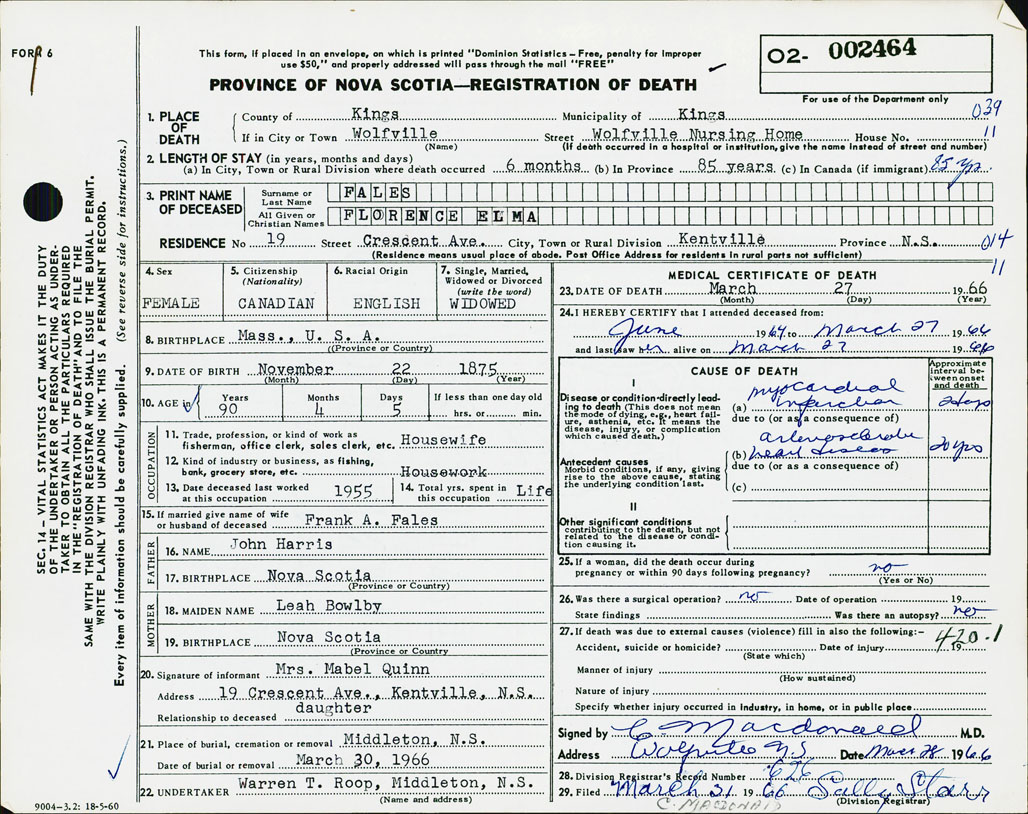 FORM 6
This form, if placed in an envelope, on which is printed "Dominion Statistics – Free, penalty for improper
use $50," and properly addressed will pass through the mail "FREE"
PROVINCE OF NOVA SCOTIA—REGISTRATION OF DEATH
02- 002464
For use of the Department only
039
11
1. PLACE OF DEATH
County of Kings Municipality of Kings
If in City or Town Wolfville Street Wolfville Nursing Home House No.
(Name) (If death occurred in a hospital or institution, give the name instead of street and number)
2. LENGTH OF STAY (in years, months and days)
(a) In City, Town or Rural Division where death occurred 6 months (b) In Province 85 years (c) In Canada (if immigrant) 85 yrs
3. PRINT NAME OF DECEASED
Surname or Last Name FALES
All Given or Christian Names FLORENCE ELMA
RESIDENCE No 19 Street Crescent Ave. City, Town or Rural Division Kentville Province N.S.
014
11
(Residence means usual place of abode. Post Office Address for residents in rural parts not sufficient)
4. Sex
FEMALE
5. Citizenship
(Nationality)
CANADIAN
6. Racial Origin
ENGLISH
7. Single, Married,
Widowed or Divorced
(write the word)
WIDOWED
8. BIRTHPLACE Mass., U. S. A.
((Province or Country)
9. DATE OF BIRTH November 22 1875
(Month) (Day) (Year)
10. AGE in
Years Months Days If less than one day old
90 4 5 hrs. or min.
OCCUPATION
11. Trade, profession, or kind of work as
fisherman, office clerk, sales clerk, etc. Housewife
12. Kind of industry or business, as fishing,
bank, grocery store, etc. Housework
13. Date deceased last worked
at this occupation 1955
14. Total yrs. spent in
this occupation Life
15. If married give name of wife
or husband of deceased Frank A. Fales
FATHER
16. NAME John Harris
17. BIRTHPLACE Nova Scotia
(Province or Country)
MOTHER
18. MAIDEN NAME Leah Bowlby
19. BIRTHPLACE Nova Scotia
(Province or Country)
20. Signature of informant Mrs. Mabel Quinn
Address 19 Crescent Ave., Kentville, N.S.
Relationship to deceased daughter
21. Place of burial, cremation or removal Middleton, N.S.
Date of burial or removal March 30, 1966
22. UNDERTAKER Warren T. Roop, Middleton, N.S.
(Name and address)
MEDICAL CERTIFICATE OF DEATH
23. DATE OF DEATH March 27 1966
(Month) (Day) (Year)
24. I HEREBY CERTIFY that I attended deceased from:
June 1964 to March 27 1966
and last saw her alive on March 27 1966
CAUSE OF DEATH
Approximate
interval be-
tween onset
and death
I
Disease or condition directly lead-
ing to death (This does not mean
the mode of dying, e.g., heart fail-
ure, asthenia, etc. It means the
disease, injury, or complication
which caused death.)
myocardial
(a) infarction 2 days
due to (or as a consequence of)
Antecedent causes
Morbid conditions, if any, giving
rise to the above cause, stating
the underlying condition last.
arteriosclerotic
(b) heart disease 20 yrs
due to (or as a consequence of)
(c)
II
Other significant conditions
contributing to the death, but not
related to the disease or condi-
tion causing it.
25. If a woman, did the death occur during
pregnancy or within 90 days following pregnancy? no
(Yes or No)
26. Was there a surgical operation? no Date of operation 19
State findings Was there an autopsy? no
27. If death was due to external causes (violence) fill in also the following:–
420.1
Accident, suicide or homicide? Date of injury 19
(State which)
Manner of injury
(How sustained)
Nature of injury
Specify whether injury occurred in industry, in home, or in public place
Signed by C Macdonald M.D.
Address Wolfville N.S Date Mar 28 1966
28. Division Registrar's Record Number 626
29. Filed March 31 1966 Sally Starr
(Division Registrar)
C. MACDONALD
SEC. 14 – VITAL STATISTICS ACT MAKES IT THE DUTY
OF THE UNDERTAKER OR PERSON ACTING AS UNDER-
TAKER TO OBTAIN ALL THE PARTICULARS REQUIRED
IN THE "REGISTRATION OF DEATH" AND TO FILE THE
SAME WITH THE DIVISION REGISTRAR WHO SHALL ISSUE THE BURIAL PERMIT.
WRITE PLAINLY WITH UNFADING INK. THIS IS A PERMANENT RECORD.
Every item of information should be carefully supplied. (See reverse side for instructions.)
9004-3.2: 18-5-60